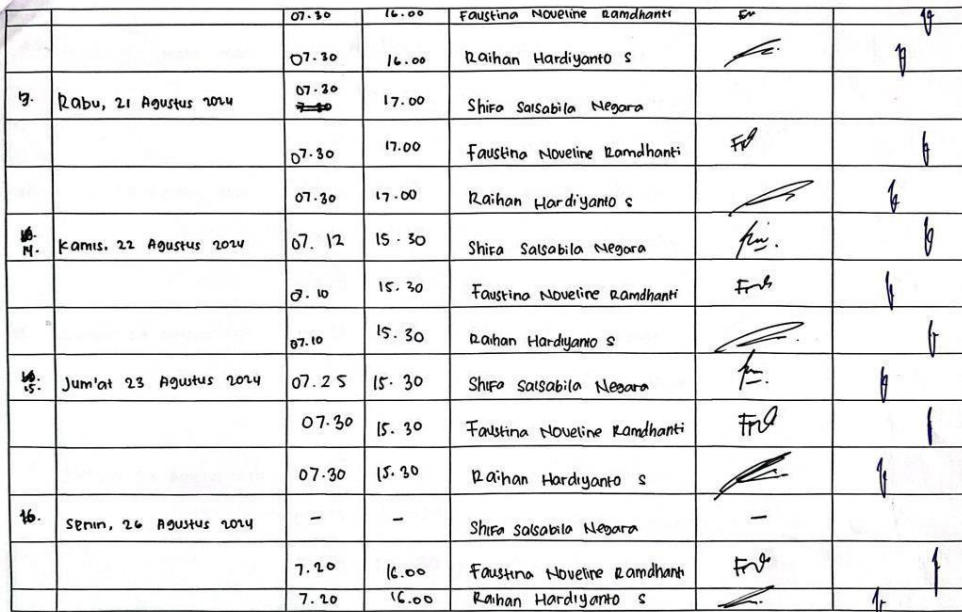 07.30 16.00 Faustina Noveline Ramdhanti
07.30 16.00 Raihan Hardiyanto S
13. Rabu, 21 Agustus 2024 07.30 17.00 Shifa Salsabila Negara
07.30 17.00 Faustina Noveline Ramdhanti
07.30 17.00 Raihan Hardiyanto S
14. Kamis, 22 Agustus 2024 07.12 15.30 Shifa Salsabila Negara
07.10 15.30 Faustina Noveline Ramdhanti
07.10 15.30 Raihan Hardiyanto S
15. Jum'at 23 Agustus 2024 07.25 15.30 Shifa Salsabila Negara
07.30 15.30 Faustina Noveline Ramdhanti
07.30 15.30 Raihan Hardiyanto S
16. Senin, 26 Agustus 2024 - - Shifa Salsabila Negara -
7.20 16.00 Faustina Noveline Ramdhanti
7.20 16.00 Raihan Hardiyanto S